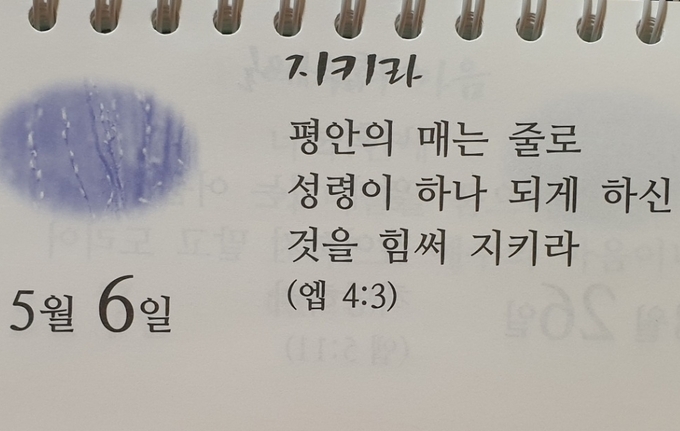 지키라
평안의 매는 줄로
성령이 하나 되게 하신
것을 힘써 지키라
(엡 4:3)
5월 6일